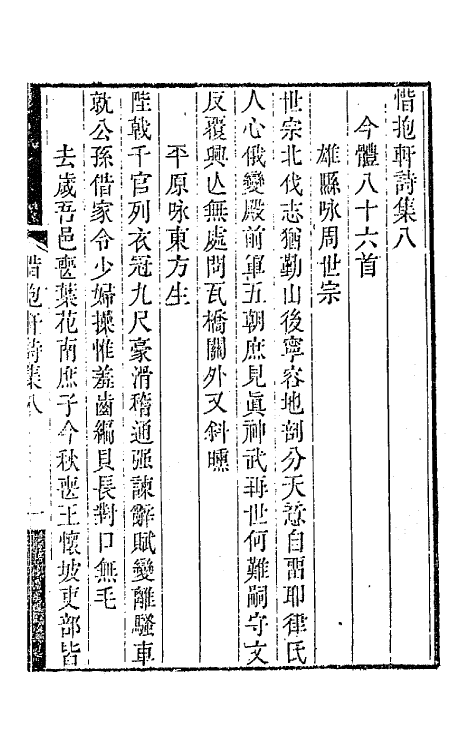 惜抱軒詩集八
今體八十六首
雄縣咏周世宗
世宗北伐志猶勤山後寧容地剖分天意自畱耶律氏
人心俄變殿前軍五朝庶見眞神武再世何難嗣守文
反覆興亾無處問瓦橋關外又斜曛
平原咏東方生
陛戟千官列衣冠九尺豪滑稽通强諫辭賦變離騷車
就公孫借家令少婦操惟羞齒編貝長對口無毛
去歲吾邑喪葉花南庶子今秋喪王懷坡吏部皆
惜抱軒詩集八
一